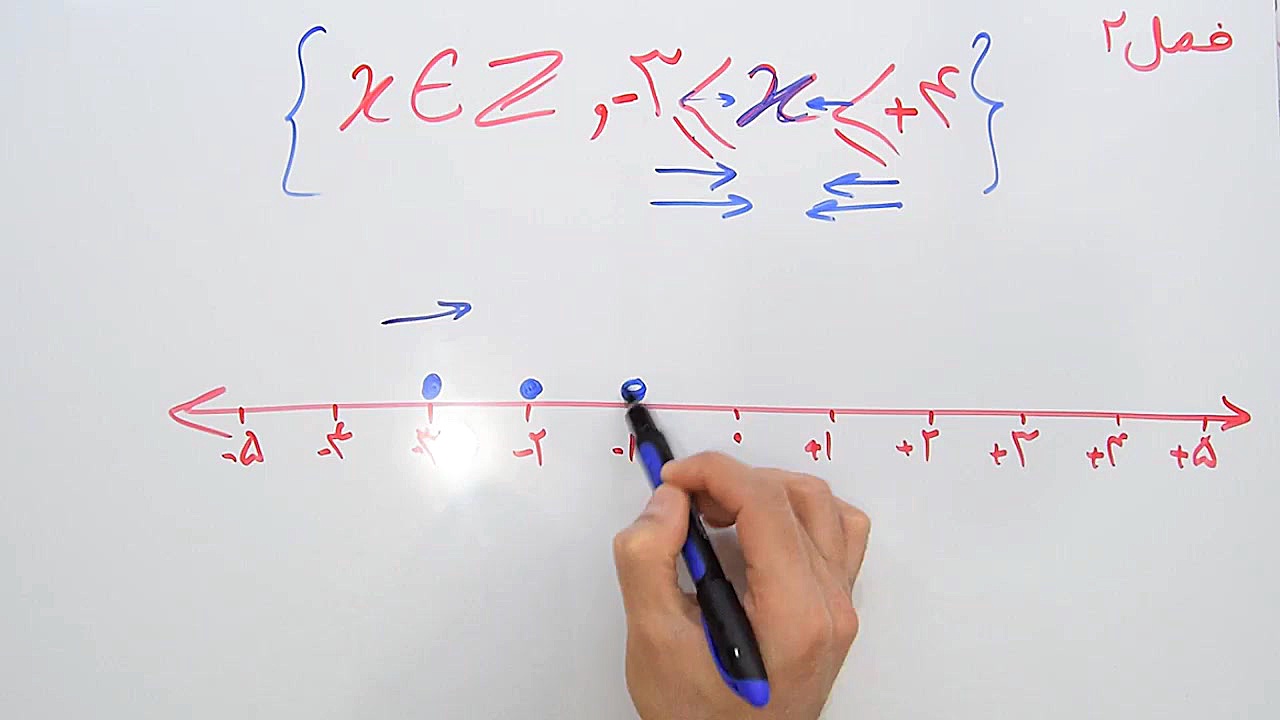 فصل ۲
{ x ∈ Z , -۳ ≤ x ≤ +۴ }
-۵ -۴ -۳ -۲ -۱ ۰ +۱ +۲ +۳ +۴ +۵